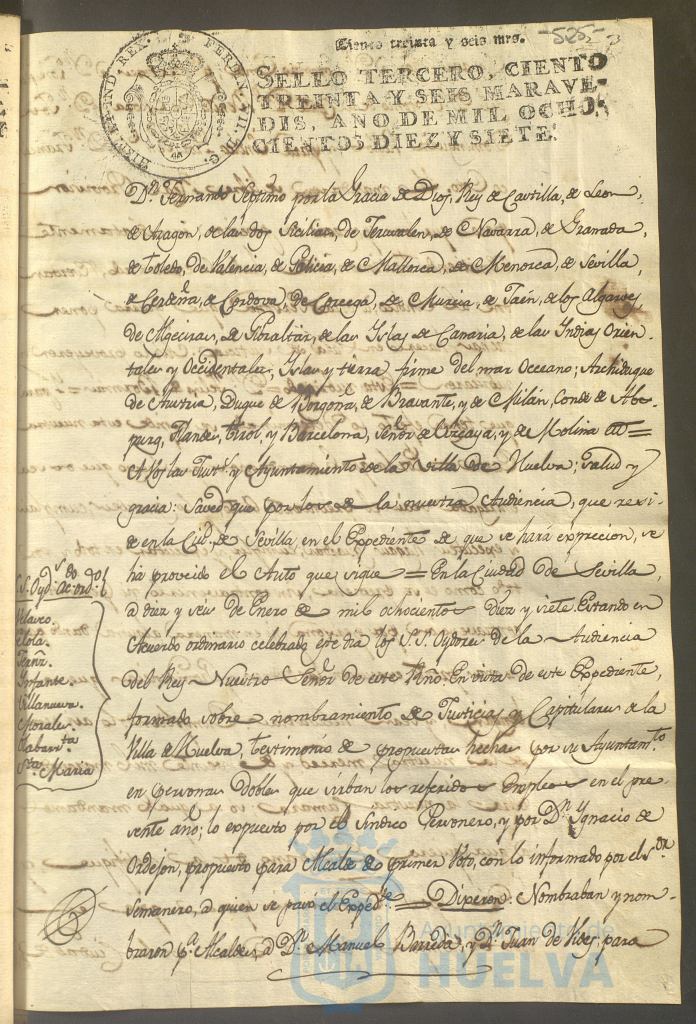 Ciento treinta y seis mrs.
525
HISP. ET IND. REX. FERDIN. VII. D. G.
SELLO TERCERO, CIENTO
TREINTA Y SEIS MARAVE-
DIS, AÑO DE MIL OCHO-
CIENTOS DIEZ Y SIETE.
Dn. Fernando Septimo por la Gracia de Dios, Rey de Castilla, de Leon,
de Aragon, de las dos Sicilias, de Jerusalen, de Navarra, de Granada,
de Toledo, de Valencia, de Galicia, de Mallorca, de Menorca, de Sevilla,
de Cerdeña, de Cordova, de Corcega, de Murcia, de Jaén, de los Algarves
de Algeciras, de Gibraltár, de las Islas de Canaria, de las Indias Orien-
tales y Occidentales, Islas y tierra firme del mar Occeano; Archiduque
de Austria, Duque de Borgoña, de Bravante, y de Milán, Conde de Abs-
purg, Flandes, Tirol, y Barcelona, Señor de Vizcaya, y de Molina &c. =
A Vos las Just.s y Ayuntamiento de la Villa de Huelva; Salud y
gracia: Saved que por los de la nuestra Audiencia, que resi-
de en la Ciud. de Sevilla, en el Expediente de que se hará expresion, se
ha proveido el Auto que sigue = En la Ciudad de Sevilla,
a diez y seis de Enero de mil ochocientos diez y siete. Estando en
Acuerdo ordinario celebrado este dia los S.S. Oydores de la Audiencia
del Rey Nuestro Señor de este año. En vista de este Expediente,
formado sobre nombramiento de Justicias y Capitulares de la
Villa de Huelva, testimonio de propuestas hechas por su Ayuntam.to
en personas dobles que sirban los referidos Empleos en el pre-
sente año; lo expuesto por el Sindico Personero, y por Dn. Ygnacio de
Ordejon, propuesto para Alcalde de primer Voto, con lo informado por el s.or
Semanero, a quien se pasó el Exped.te = Dixeron: Nombraban y nom-
braron p.a Alcaldes, a Dn. Manuel Barreda, y Dn. Juan de Vides, para
S.S. Oyd.s Ac.do ord.o
Velasco.
Infante.
Villanueva.
Morales.
Sta. Maria
Ayuntamiento de
HUELVA